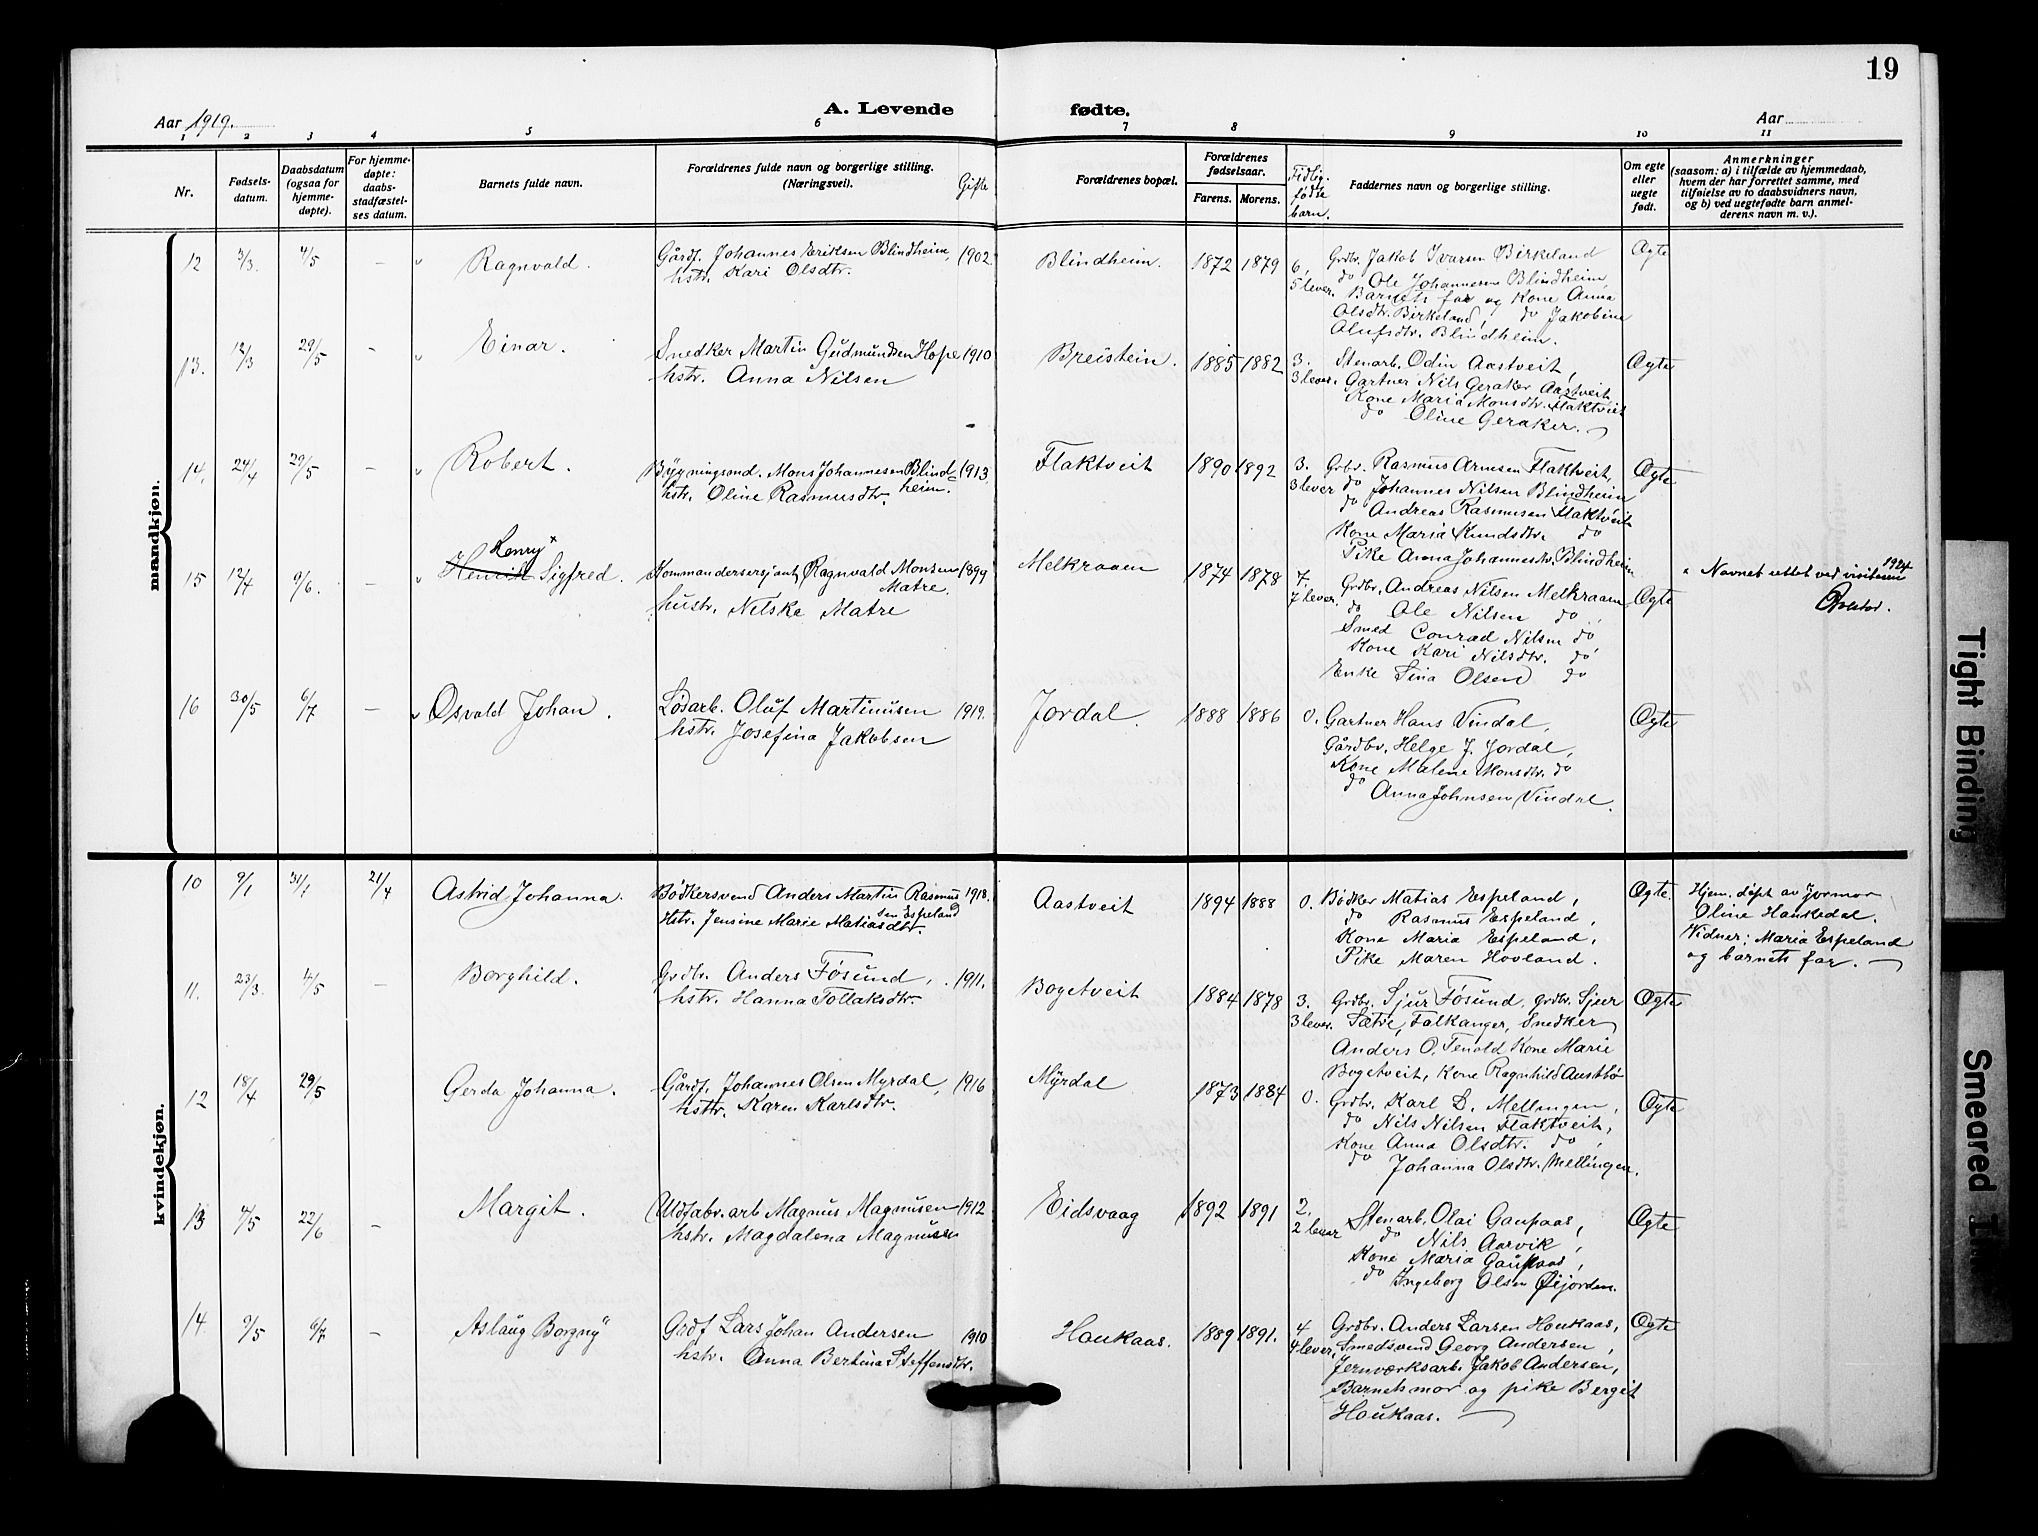 19
A. Levende fødte.
Aar 1919.
Aar
1 2 3 4 5 6 7 8 9 10 11
Nr.
Fødsels-
datum.
Daabsdatum
(ogsaa for
hjemme-
døpte).
For hjemme-
døpte:
daabs-
stadfæstel-
ses datum.
Barnets fulde navn.
Forældrenes fulde navn og borgerlige stilling.
(Næringsvei).
Gifte
Forældrenes bopæl.
Forældrenes
fødselsaar.
Farens. Morens.
Tidlig.
fødte
barn.
Faddernes navn og borgerlige stilling.
Om egte
eller
uegte
født.
Anmerkninger
(saasom: a) i tilfælde av hjemmedaab,
hvem der har forrettet samme, med
tilføielse av to daabsvidners navn,
og b) ved uegtefødte barn anmel-
derens navn m. v.).
mandkjøn.
12 3/3. 4/5 - Ragnvald.
Gårdf. Johannes Eriksen Blindheim, 1902
hstr. Kari Olsdtr.
Blindheim. 1872 1879 6,
5 lever.
Grdbr. Jakob Ivarsen Birkeland
do Ole Johannesen Blindheim,
Barnets far og Kone Anna
Olsdtr. Birkeland, do Jakobine
Olufsdtr. Blindheim.
Ægte
13. 12/3 29/5 - Einar.
Snedker Martin Gudmundsen Hope 1910
hstr. Anna Nilsen
Breistein. 1885 1882 3.
3 lever.
Stenarb. Odin Aastveit,
Gartner Nils Geraker Aastveit,
Kone Maria Monsdtr. Flaktveit
do Oline Geraker.
Ægte
14. 24/4 29/5 - Robert.
Bygningssnd. Mons Johannesen Blind= 1913.
heim.
hstr. Oline Rasmusdtr.
Flaktveit 1890 1892 3.
3 lever
Grbr. Rasmus Arnesen Flaktveit,
do Johannes Nilsen Blindheim
do Andreas Rasmusen Flaktveit
Kone Maria Knudsdtr. do
Pike Anna Johannesdtr. Blindheim
Ægte
15 12/4 9/6. - Henry x
Henrik Sigfred.
Kommandersersjant Ragnvald Monsen 1899
Matre.
hustr. Nilske Matre
Melkraaen 1874 1878 7.
7 lever.
Grdbr. Andreas Nilsen Melkraaen
do Ole Nilsen do,
Smed Conrad Nilsen do
Kone Kari Nilsdtr. do
Enke Sina Olsen do
Ægte
Navnet rettet ved visitasen 1924
16 30/5 6/7 - Osvald Johan.
Løsarb. Oluf Martinusen 1919.
hstr. Josefina Jakobsen
Jordal. 1888 1886 0.
Gartner Hans Vindal,
Gårdbr. Helge J. Jordal,
Kone Malene Monsdtr. do
do Anna Johnsen Vindal.
Ægte
kvindekjøn.
10 9/1 31/1 21/4 Astrid Johanna.
Bødkersvend Anders Martin Rasmus 1918.
sen Espeland
Hstr. Jensine Marie Matiasdtr.
Aastveit 1894 1888 0.
Bødker Matias Espeland,
do Rasmus Espeland,
Kone Maria Espeland,
Pike Maren Hovland.
Ægte.
Hjem. døpt av Jormor
Oline Haukedal.
Vidner: Maria Espeland
og barnets far.
11. 23/3. 4/5 - Borghild.
Grdbr. Anders Føsund, 1911.
hstr. Hanna Tollaksdtr.
Bogetveit 1884 1878 3.
3 lever.
Grdbr. Sjur Føsund, Grdbr. Sjur
Sætre, Falkanger, Snedker
Anders O. Tenold Kone Marie
Bogetveit, Kone Ragnhild Austbø
Ægte
12 18/4 29/5 Gerda Johanna.
Gårdf. Johannes Olsen Myrdal, 1916
hstr. Karen Karlsdtr.
Myrdal 1873 1884 0.
Grdbr. Karl D. Mellingen,
do Nils Nilsen Flaktveit,
Kone Anna Olsdtr. do,
do Johanna Olsdtr. Mellingen.
Ægte
13 4/5 22/6 - Margit.
Uldfabr. arb Magnus Magnusen 1912
hstr. Magdalena Magnussen
Eidsvaag 1892 1891 2.
2 lever
Stenarb. Olai Gaupaas,
do Nils Aarvik,
Kone Maria Gaupaas,
do Ingeborg Olsen Øijorden.
Ægte
14. 9/5 6/7 - Aslaug Borgny
Grdf Lars Johan Andersen 1910
hstr. Anna Bertina Steffensdtr.
Haukaas. 1889 1891. 4
4 lever,
Grdbr. Anders Larsen Haukaas,
Smedsvend Georg Andersen,
Jernværksarb. Jakob Andersen,
Barnets mor og pike Bergit
Haukaas.
Ægte
Tight Binding
Smeared